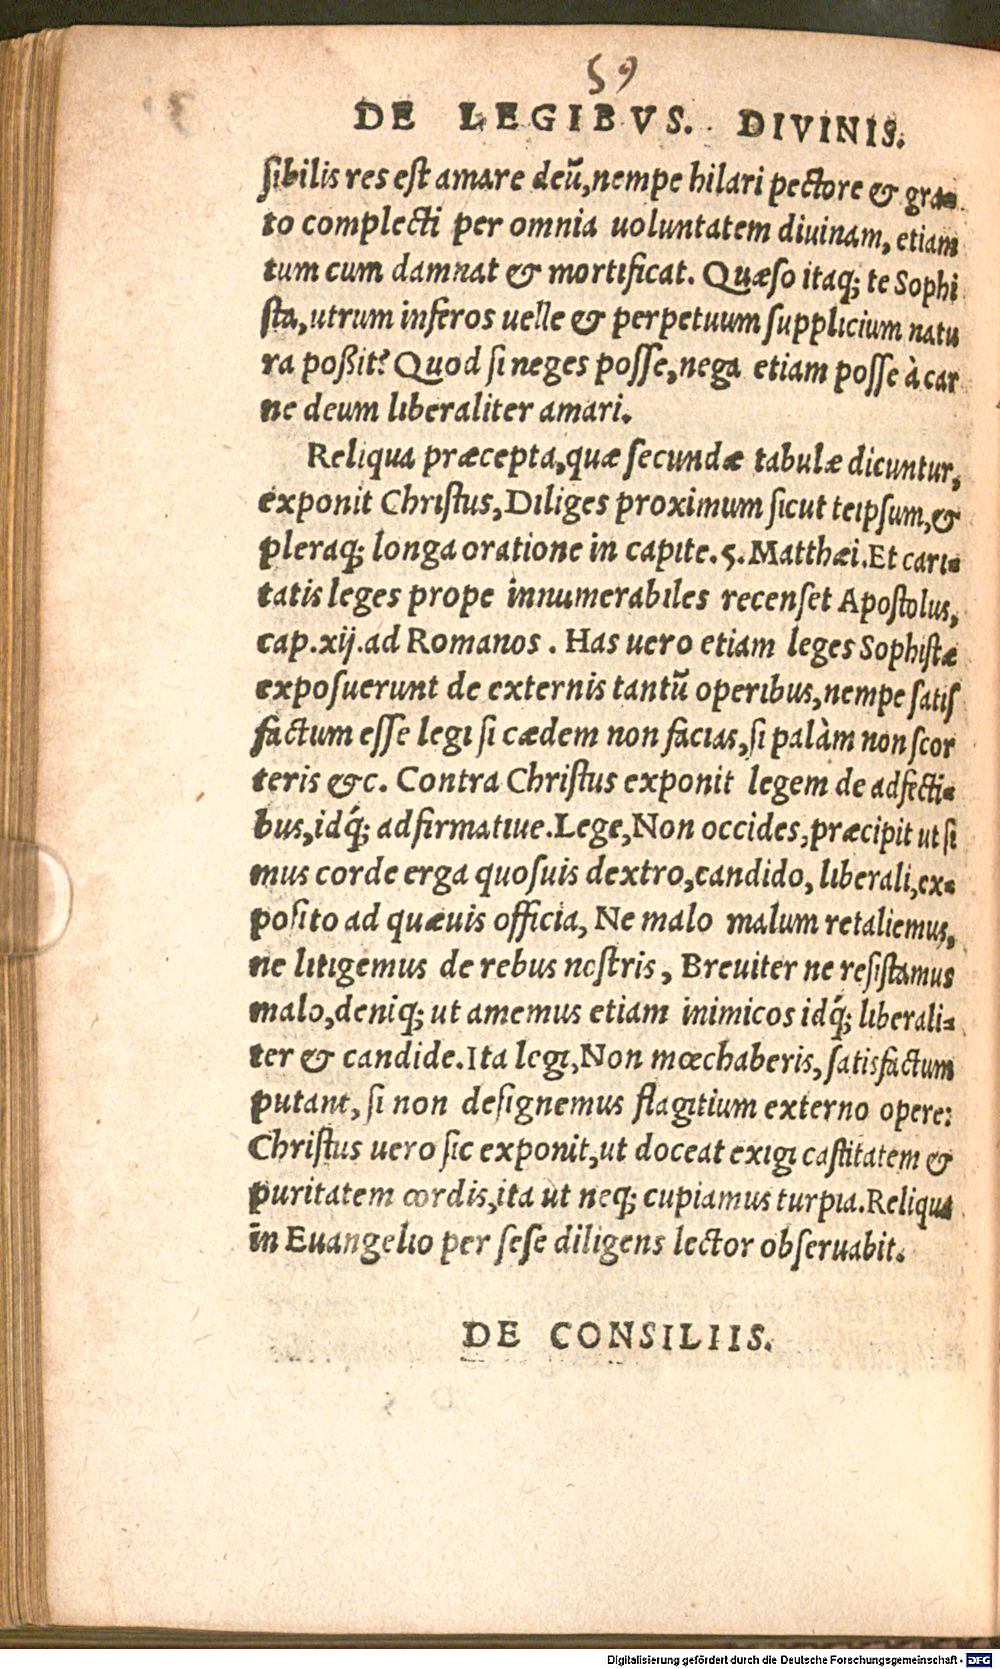 59
DE LEGIBVS. DIVINIS.
sibilis res est amare deũ, nempe hilari pectore & gra-
to complecti per omnia uoluntatem diuinam, etiam
tum cum damnat & mortificat. Quæso itaq; te Sophi
sta, utrum inferos uelle & perpetuum supplicium natu
ra poßit? Quod si neges posse, nega etiam posse à car
ne deum liberaliter amari.
Reliqua præcepta, quæ secundæ tabulæ dicuntur,
exponit Christus, Diliges proximum sicut teipsum, &
pleraq; longa oratione in capite. 5. Matthæi. Et cari-
tatis leges prope innumerabiles recenset Apostolus,
cap. xij. ad Romanos. Has uero etiam leges Sophistæ
exposuerunt de externis tantũ operibus, nempe satis
factum esse legi si cædem non facias, si palàm non scor
teris &c. Contra Christus exponit legem de adfecti-
bus, idq́; adfirmatiue. Lege, Non occides, præcipit ut si
mus corde erga quosuis dextro, candido, liberali, ex-
posito ad quæuis officia, Ne malo malum retaliemus,
ne litigemus de rebus nostris, Breuiter ne resistamus
malo, deniq; ut amemus etiam inimicos idq́; liberali-
ter & candide. Ita legi, Non mœchaberis, satisfactum
putant, si non designemus flagitium externo opere:
Christus uero sic exponit, ut doceat exigi castitatem &
puritatem cordis, ita ut neq; cupiamus turpia. Reliqua
in Euangelio per sese diligens lector obseruabit.
DE CONSILIIS.
Digitalisierung gefördert durch die Deutsche Forschungsgemeinschaft - DFG